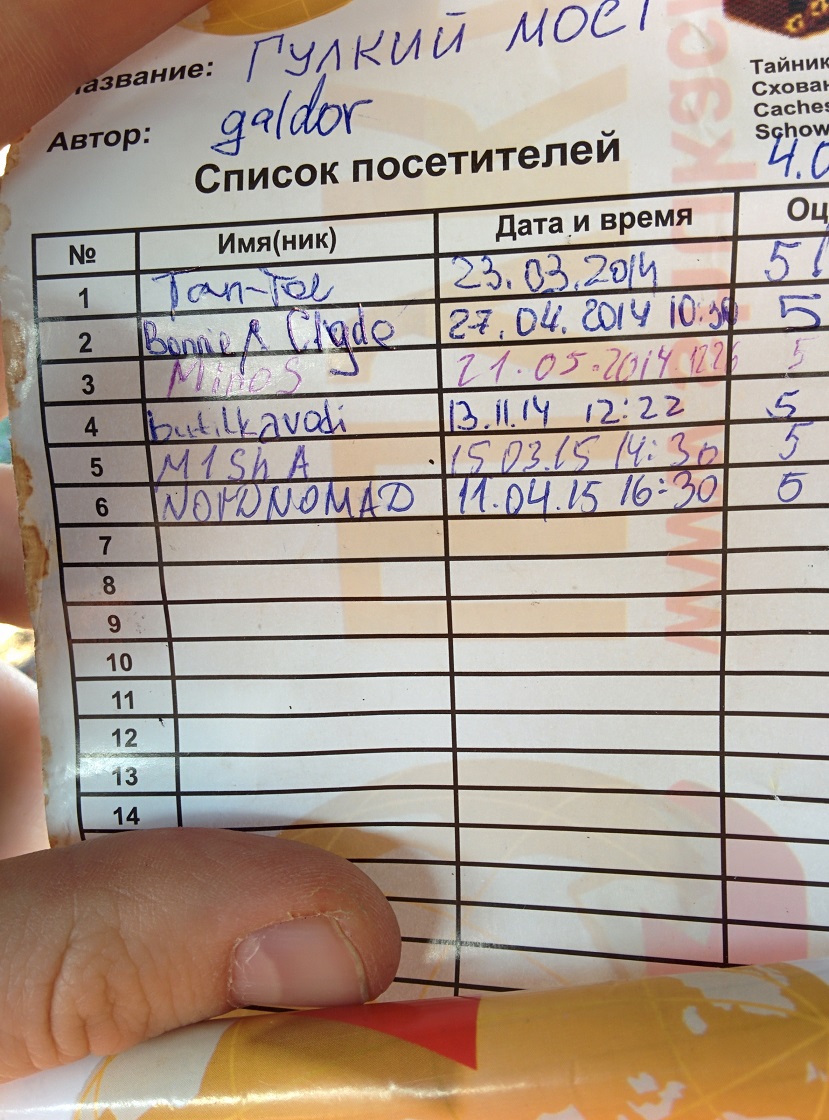 Название: Гулкий мост
Автор: galdor
Тайник
Схован
Caches
Schow
4.0
Список посетителей
№ Имя(ник) Дата и время Оц
1 Tan-Tol 23.03.2014 5!
2 Bonnie & Clyde 27.04.2014 10:30 5
3 Minos 21.05.2014 1226 5
4 butilkavodi 13.11.14 12:22 5
5 M1ShA 15 03.15 14:30 5
6 NORDNOMAD 11.04.15 16:30 5
7
8
9
10
11
12
13
14